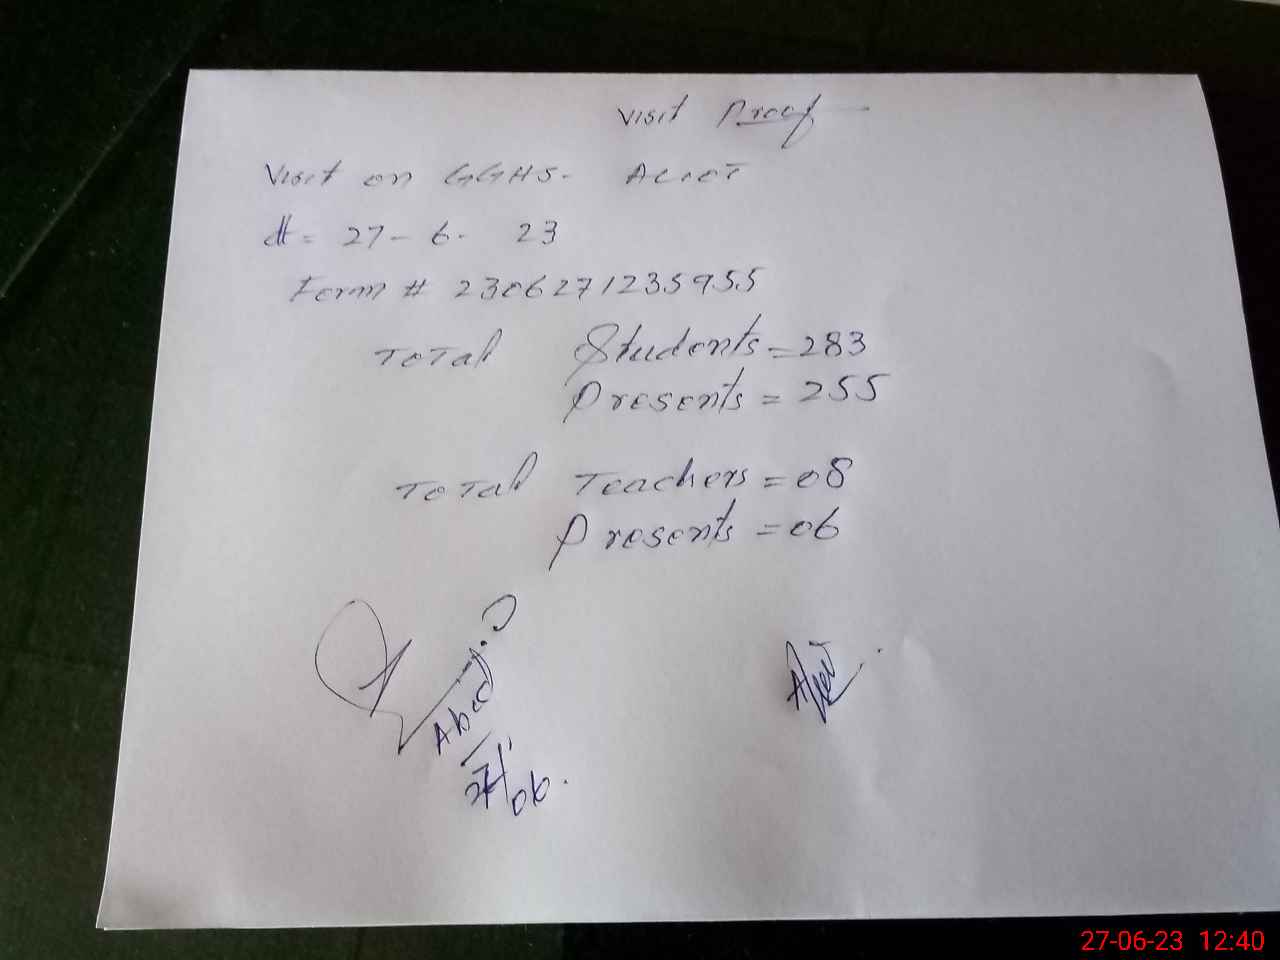 Visit Proof
Visit on GGHS. Aliot
dt = 27 - 6 - 23
Form # 2306271235955
Total Students = 283
Presents = 255
Total Teachers = 08
Presents = 06
Abid
27/06.
27-06-23 12:40